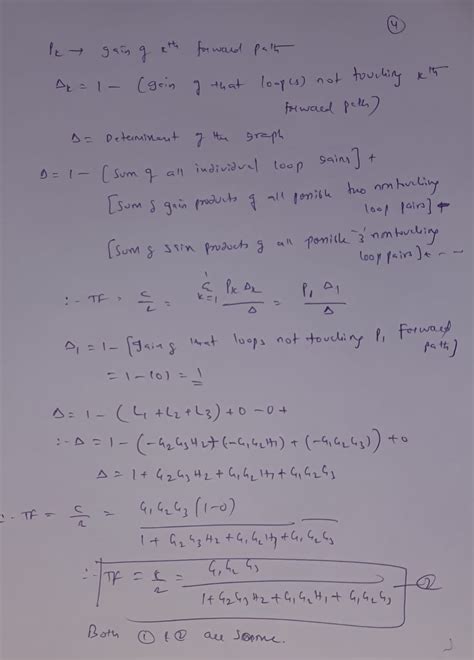 4
Pk → gain of kth forward path
Δk = 1 - (gain of that loop(s) not touching kth
forward path)
Δ = Determinant of the graph
Δ = 1 - [sum of all individual loop gains] +
[sum of gain products of all possible two nontouching
loop pairs] +
[sum of gain products of all possible '3' nontouching
loop pairs] + - -
∴ TF = C/R = Σ(k=1 to 1) Pk Δk / Δ = P1 Δ1 / Δ
Δ1 = 1 - [gain of that loops not touching P1 Forward
path]
= 1 - (0) = 1
Δ = 1 - (L1 + L2 + L3) + 0 - 0 +
∴ Δ = 1 - (-G2G3H2 + (-G1G2H1) + (-G1G2G3)) + 0
Δ = 1 + G2G3H2 + G1G2H1 + G1G2G3
∴ TF = C/R = G1G2G3 (1-0) / 1 + G2G3H2 + G1G2H1 + G1G2G3
∴ TF = C/R = G1G2G3 / 1 + G2G3H2 + G1G2H1 + G1G2G3 - ②
Both ① & ② are same.